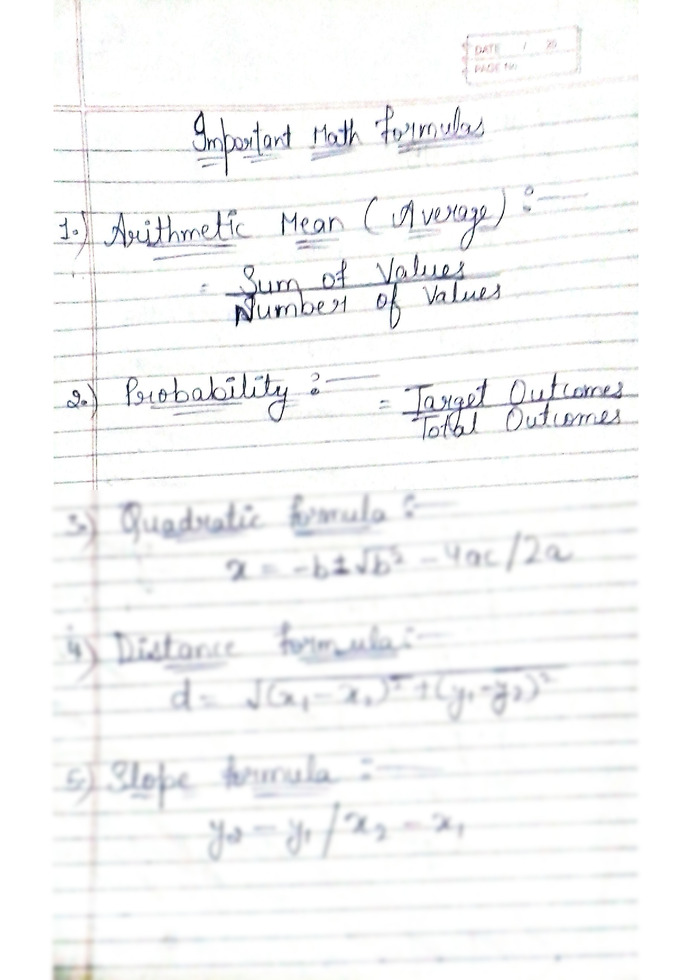 DATE / 20
PAGE No.
Important Math formulas
1.) Arithmetic Mean (Average) :—
= Sum of Values
Number of Values
2.) Probability :— = Target Outcomes
Total Outcomes
3.) Quadratic formula :—
x = -b±√b² - 4ac/2a
4) Distance formula:—
d = √(x₁-x₂)² + (y₁-y₂)²
5) Slope formula :—
y₂ - y₁/x₂ - x₁